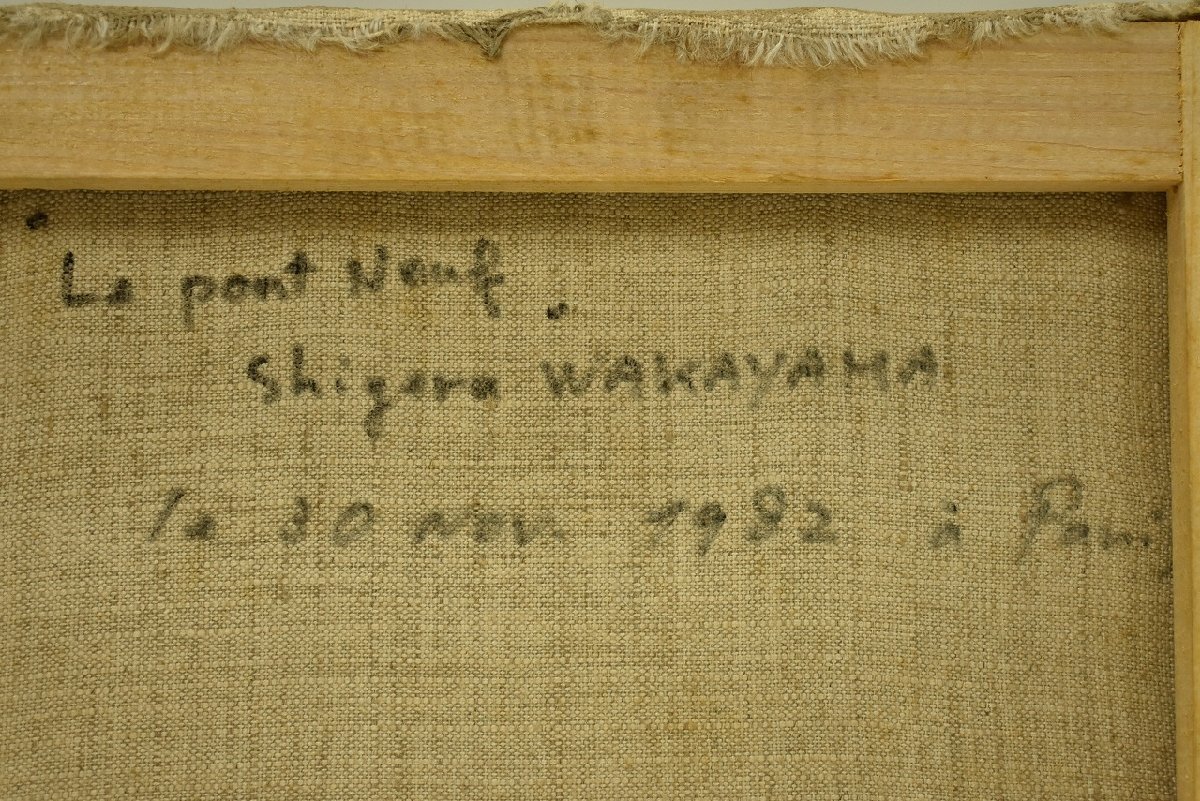 Le pont Neuf.
Shigeru WAKAYAMA
le 30 nov. 1982 à Paris